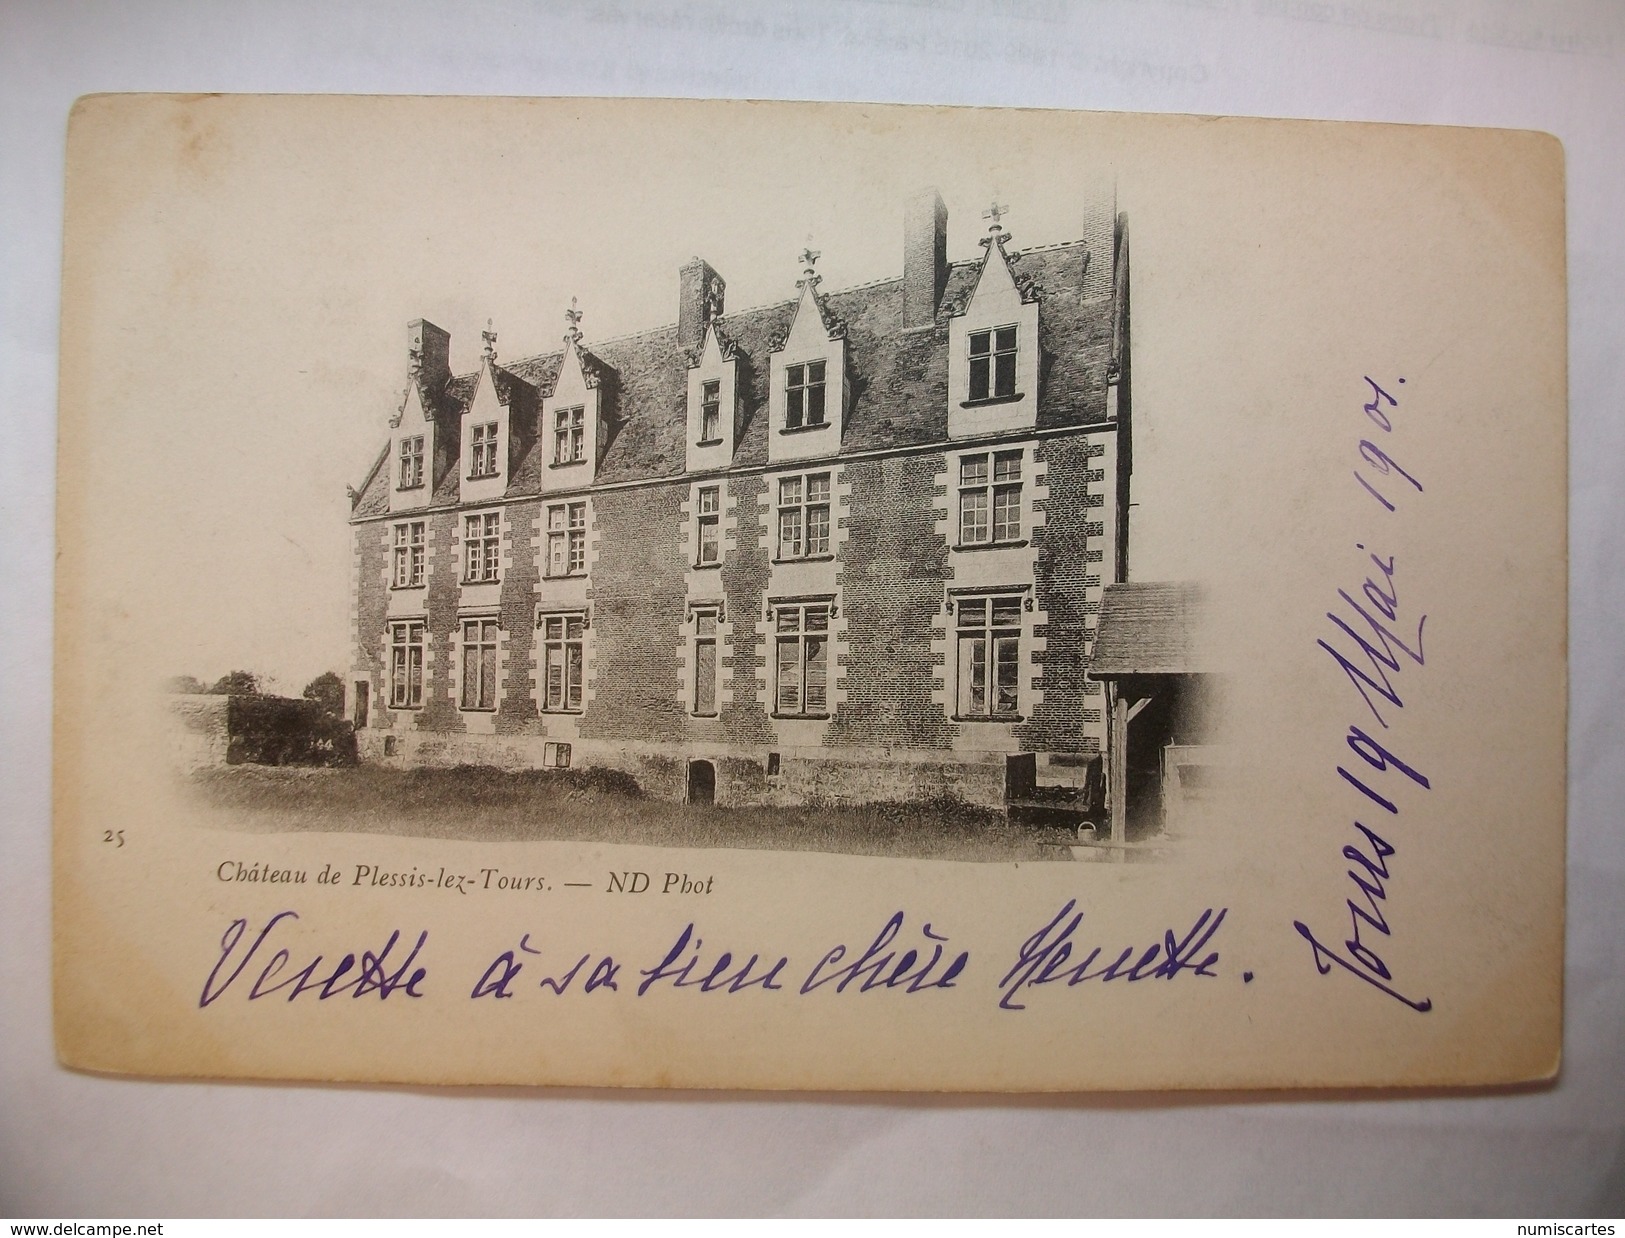 25
Château de Plessis-lez-Tours. — ND Phot
à sa bien chère
Tours 19 Mai 1901.
www.delcampe.net
numiscartes